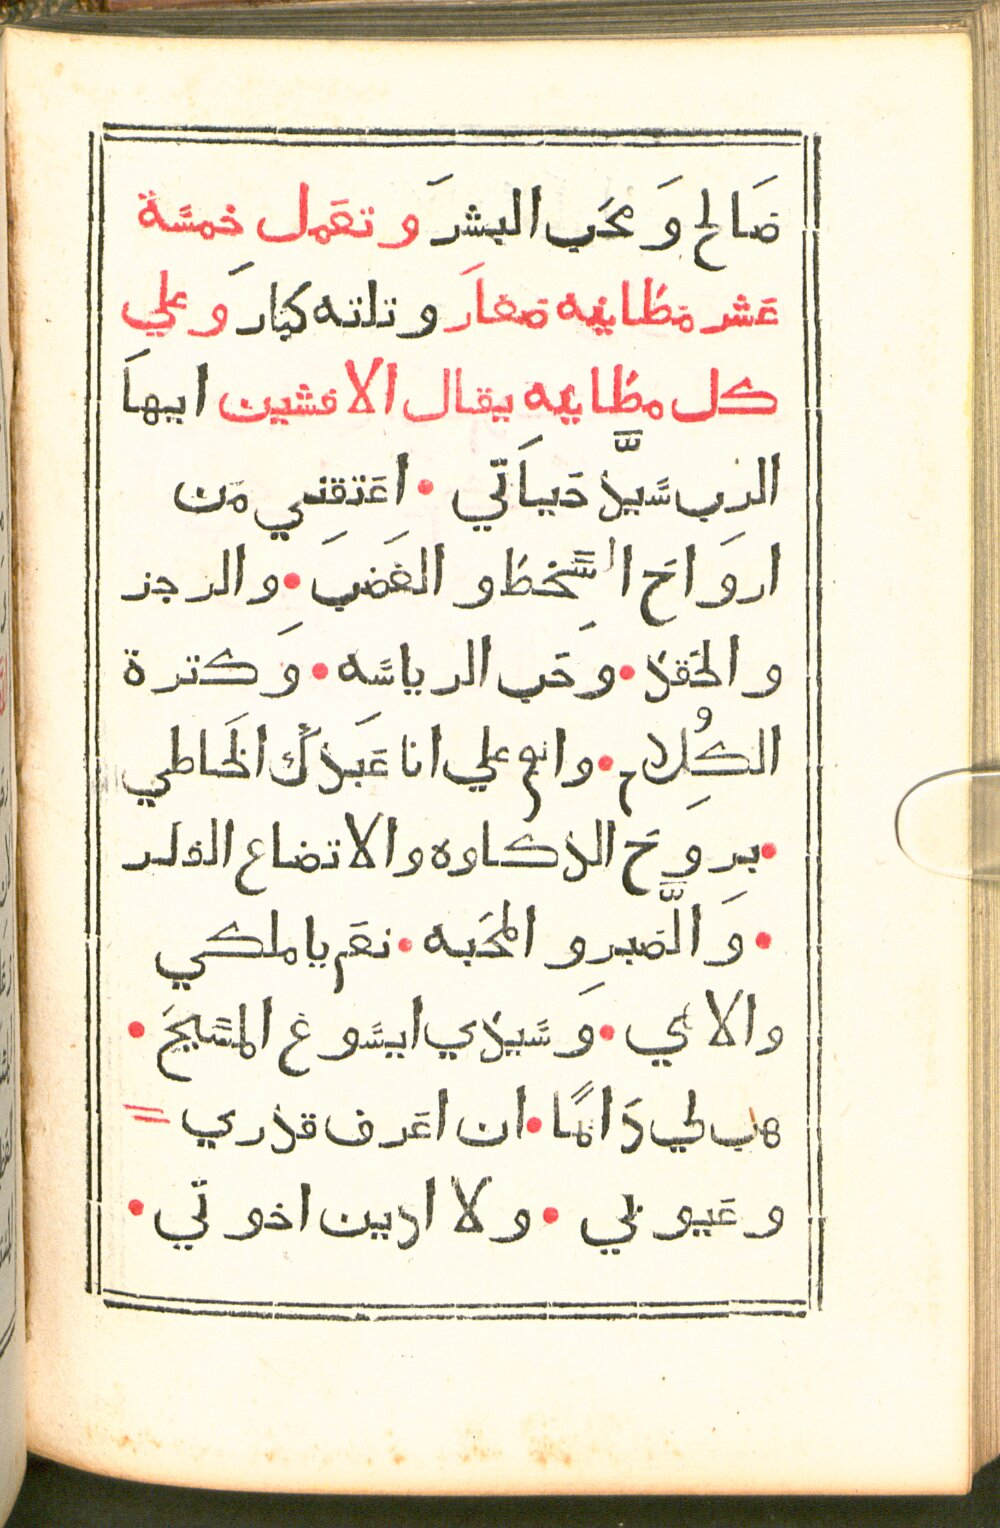 صَالح وَ محَب البشرَ و تعَمل خمسَة
عَشر مَطانيه صَغارَ و تلته كبارَ و علي
كل مطانيه يقال الافشين ايهاَ
الرب سَيدّ حَياَتي • اعَتقني مَن
اروَاحَ السَّخط و الغَضبَ • وِالرجز
والحَقد • وحَب الرياسَه • وَ كترة
الكِلامُ • وانعم علي انا عَبدَكَ الخَاطي
• بروِحَ الدكاوه والاتضاع الوافر
• وَ الصَّبر وِ المحَبه • نعَم ياملكي
والاهي • وَسَيدي ايسَوع المسَيحَ •
هب لي دَامًا • ان اعَرف قدري =
وعَيوبي • ولا ادين اخوتي •